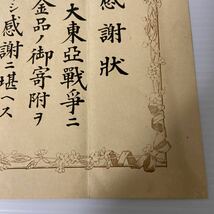 感謝状
大東亞戦爭ニ
金品ノ御寄附ヲ
シ感謝ニ堪ヘス